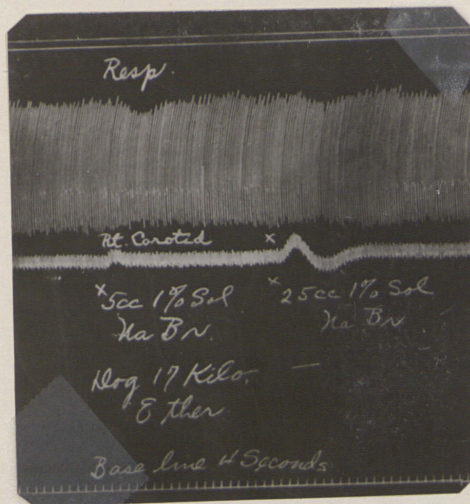 Resp.
Rt. Carotid x
x 5cc 1% Sol x 25cc 1% Sol
Na Br. Na Br
Dog 17 Kilo.
Ether
Base line 4 Seconds